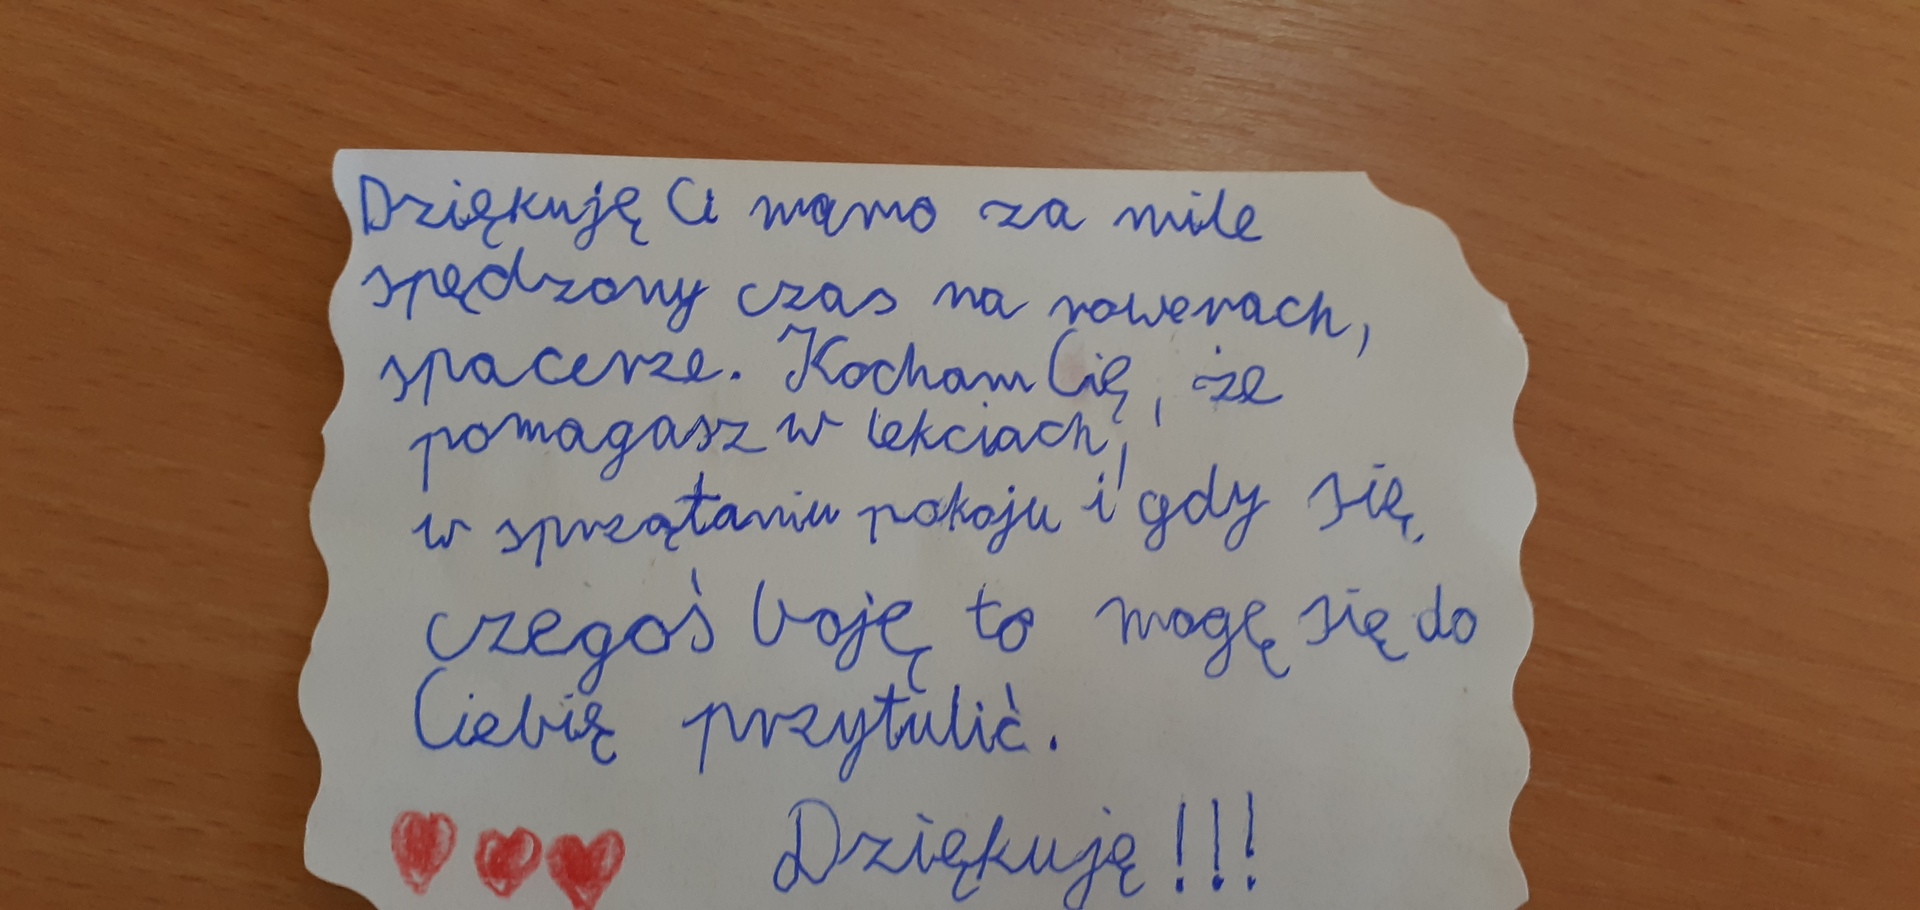 Dziękuję Ci mamo za mile
spędzony czas na rowerach,
spacerze. Kocham Cię, że
pomagasz w lekciach,
w sprzątaniu pokoju i gdy się
czegoś boję to mogę się do
Ciebię przytulić.
Dziękuję!!!